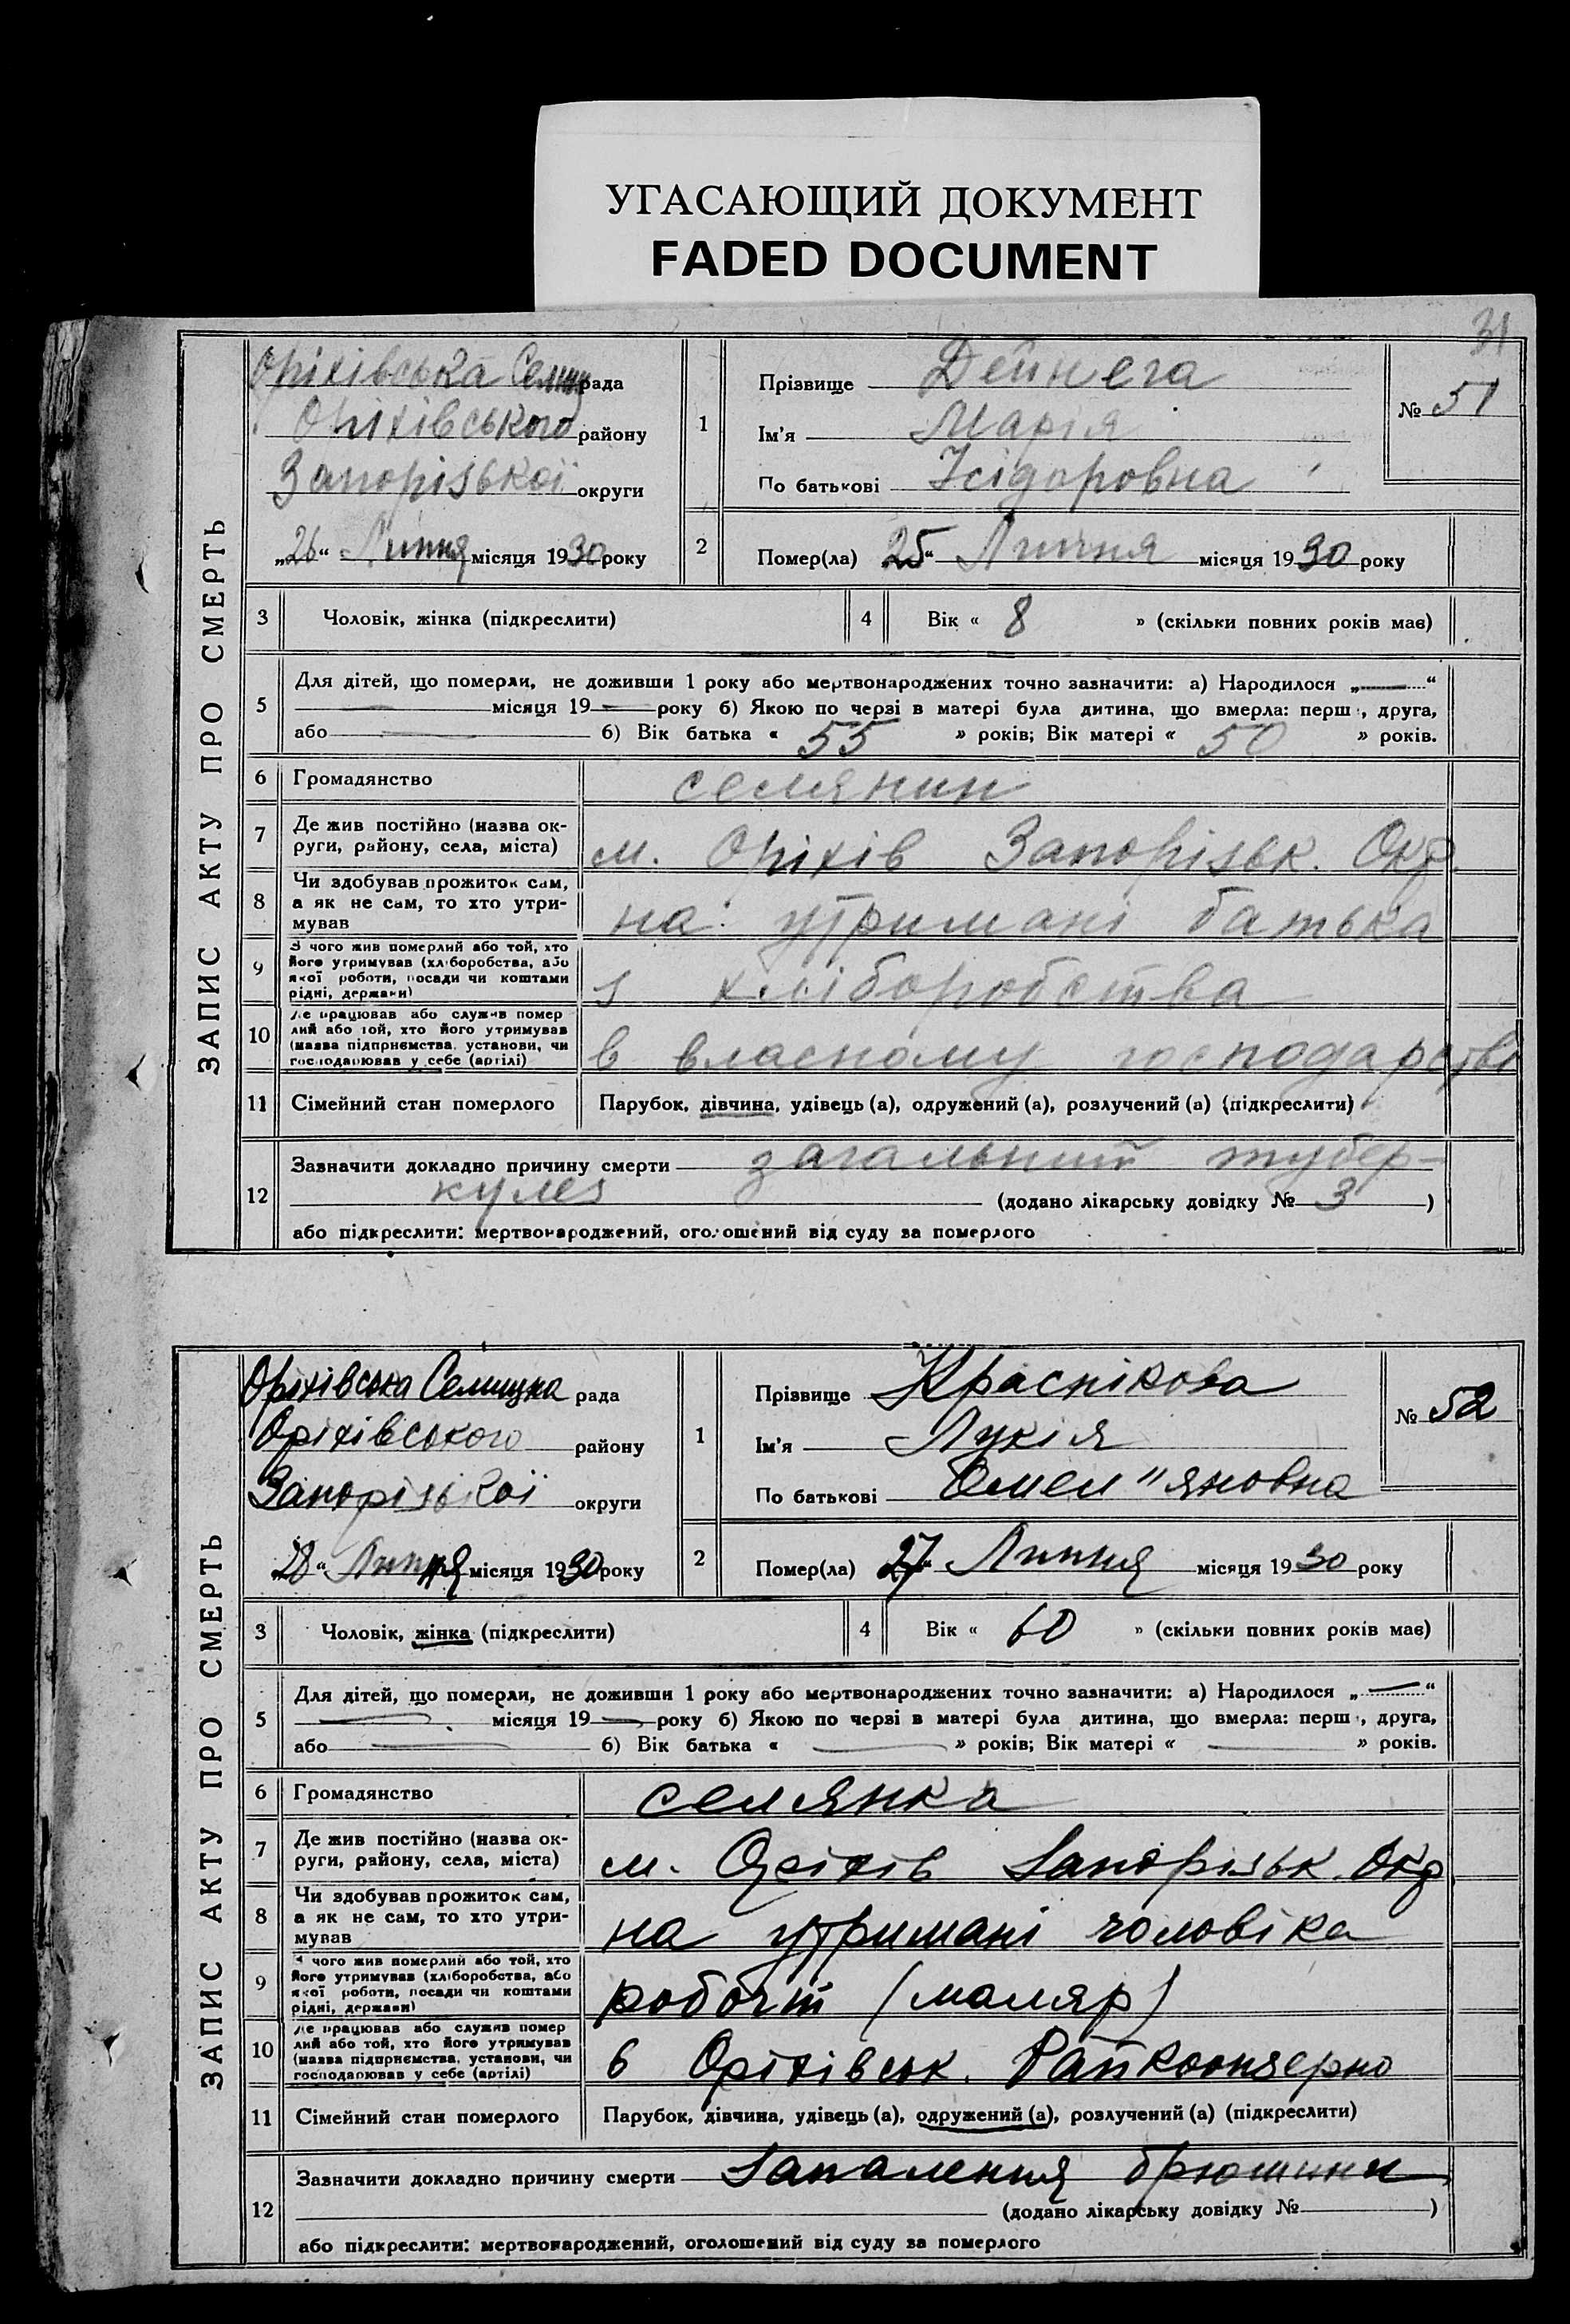 УГАСАЮЩИЙ ДОКУМЕНТ
FADED DOCUMENT
31
ЗАПИС АКТУ ПРО СМЕРТЬ
Оріхівська Селищ рада
Оріхівського району
Запорізької округи
„26“ Липня місяця 1930 року
1
Прізвище Дейнега
Ім'я Марія
По батькові Ісідоровна
№ 51
2
Помер(ла) 25“ Липня місяця 1930 року
3 Чоловік, жінка (підкреслити)
4 Вік « 8 » (скільки повних років має)
5
Для дітей, що померли, не доживши 1 року або мертвонароджених точно зазначити: а) Народилося „ “
місяця 19 року б) Якою по черзі в матері була дитина, що вмерла: перш , друга,
або 6) Вік батька « 55 » років; Вік матері « 50 » років.
6 Громадянство селянин
7
Де жив постійно (назва ок-
руги, району, села, міста)
м. Оріхів Запорізьк. Окр.
8
Чи здобував прожиток сам,
а як не сам, то хто утри-
мував
на утримані батька
9
З чого жив померлий або той, хто
його утримував (хліборобства, або
якої роботи, посади чи коштами
рідні, держави)
з хліборобства
10
Де працював або служив помер
лий або той, хто його утримував
(назва підприємства, установи, чи
господарював у себе (артілі)
в власному господарстві
11 Сімейний стан померлого Парубок, дівчина, удівець (а), одружений (а), розлучений (а) (підкреслити)
12
Зазначити докладно причину смерти загальний тубер-
кулез (додано лікарську довідку № 3 )
або підкреслити: мертвонароджений, оголошений від суду за померлого
ЗАПИС АКТУ ПРО СМЕРТЬ
Оріхівська Селищна рада
Оріхівського району
Запорізької округи
„28“ Липня місяця 1930 року
1
Прізвище Краснікова
Ім'я Лукія
По батькові Омел"яновна
№ 52
2
Помер(ла) 27“ Липня місяця 1930 року
3 Чоловік, жінка (підкреслити)
4 Вік « 60 » (скільки повних років має)
5
Для дітей, що померли, не доживши 1 року або мертвонароджених точно зазначити: а) Народилося „ “
місяця 19 року б) Якою по черзі в матері була дитина, що вмерла: перш , друга,
або 6) Вік батька « » років; Вік матері « » років.
6 Громадянство селянка
7
Де жив постійно (назва ок-
руги, району, села, міста)
м. Оріхів Запорізьк. Окр
8
Чи здобував прожиток сам,
а як не сам, то хто утри-
мував
на утримані чоловіка
9
З чого жив померлий або той, хто
його утримував (хліборобства, або
якої роботи, посади чи коштами
рідні, держави)
робочий (маляр)
10
Де працював або служив помер
лий або той, хто його утримував
(назва підприємства, установи, чи
господарював у себе (артілі)
в Оріхівськ.
11 Сімейний стан померлого Парубок, дівчина, удівець (а), одружений (а), розлучений (а) (підкреслити)
12
Зазначити докладно причину смерти Запалення брюшини
(додано лікарську довідку № )
або підкреслити: мертвонароджений, оголошений від суду за померлого